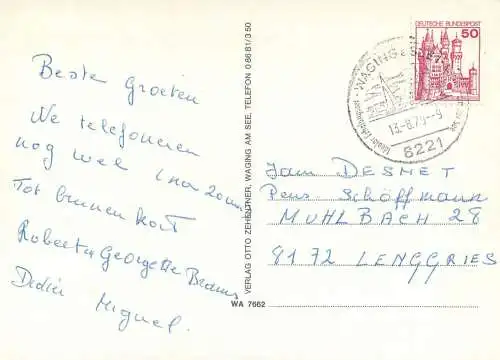 Beste Groeten
We telefoneren
nog wel
Tot binnen kort
Roberta Georgette
Didier Miguel.
VERLAG OTTO ZEHENTNER, WAGING AM SEE, TELEFON 0 86 81/3 50
WA 7662
DEUTSCHE BUNDESPOST
50
WAGING
13.-8.79-9
8221
Fam DESMET
Pens Schöffmann
MUHLBACH 28
8172 LENGGRIES